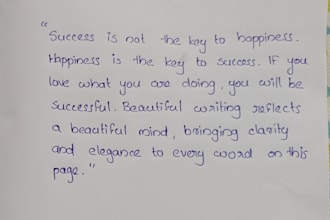 "
Success is not the key to happiness.
Happiness is the key to success. If you
love what you are doing, you will be
successful. Beautiful writing reflects
a beautiful mind, bringing clarity
and elegance to every word on this
page."